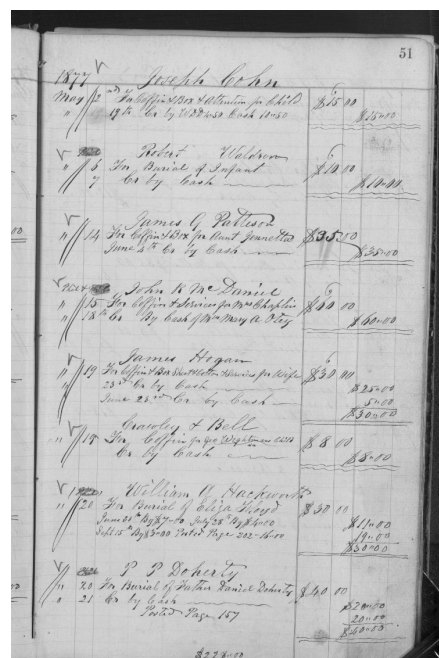 51
1877 Joseph Cohn
May 2nd For Coffin & Box & Attention for Child $15.00
" 19th Cr by Cash 10.50 $15.00
Robert Waldron
" 6 For Burial of Infant $10.00
" 7 Cr by Cash $10.00
James G Patteson
" 14 For Coffin & Box for Aunt $35.00
June 5th Cr by Cash $35.00
John R McDaniel
" 15 For Coffin & Services for Mrs Chaplin $60.00
" 18th Cr By Cash of Mrs Mary A Otey $60.00
James Hogan
" 19 For Coffin & Box & Service for Wife $30.00
" 23rd Cr by Cash $25.00
June 23rd Cr by Cash 5.00
$30.00
Crawley & Bell
" 19 For Coffin for Geo Child $8.00
Cr by Cash $8.00
William A Hackworth
" 20 For Burial of Eliza Floyd $30.00
June 30th By $7.00 July 28th By $4.00 $11.00
Sept 15th By $3.00 Posted Page 202 - 16.00 19.00
$30.00
P P Doherty
" 20 For Burial of Father Daniel Doherty $40.00
" 21 Cr by Cash $20.00
Posted Page 157 20.00
$40.00
$228.00